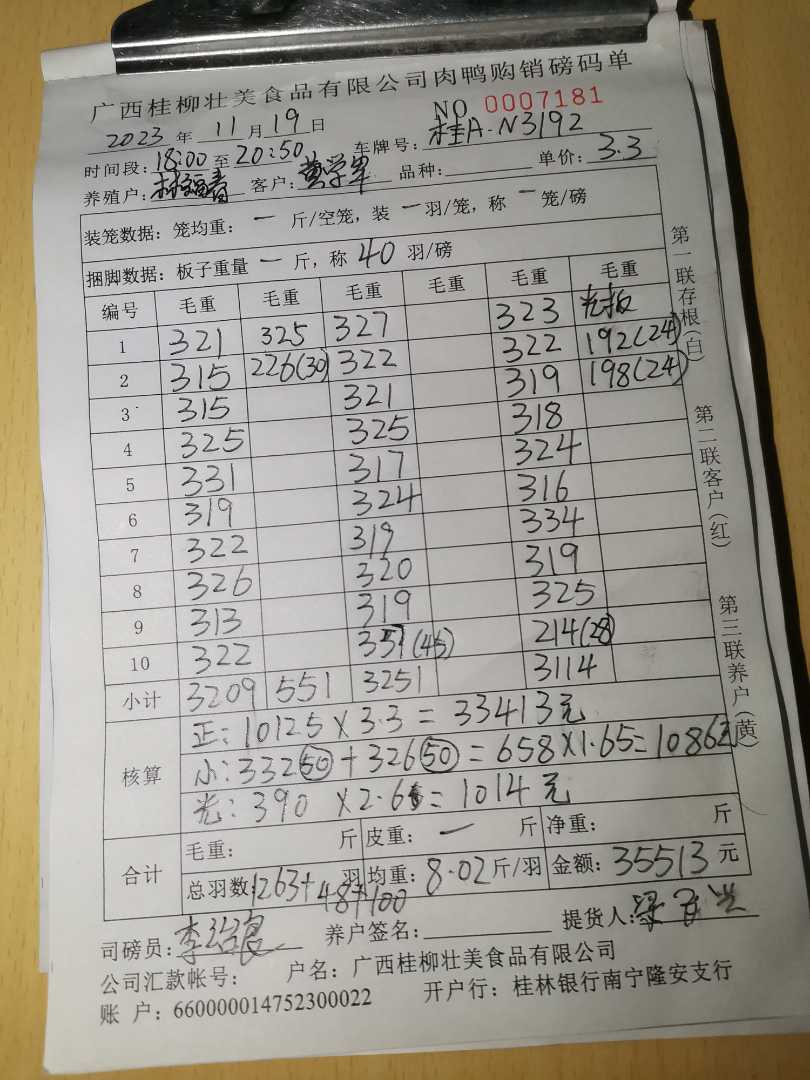 广西桂柳壮美食品有限公司肉鸭购销磅码单
NO 0007181
2023 年 11 月 19 日
时间段: 18:00 至 20:50 车牌号: 桂A·N3192
养殖户: 客户: 黄学军 品种: 单价: 3.3
装笼数据: 笼均重: 一 斤/空笼, 装 一 羽/笼, 称 一 笼/磅
捆脚数据: 板子重量 一 斤, 称 40 羽/磅
编号 毛重 毛重 毛重 毛重 毛重 毛重
1 321 325 327 323 光板
2 315 226(30) 322 322 192(24)
3 315 321 319 198(24)
4 325 325 318
5 331 317 324
6 319 324 316
7 322 319 334
8 326 320 319
9 313 319 325
10 322 357(45) 214(28)
小计 3209 551 3251 3114
核算
正: 10125 X 3.3 = 33413元
小: 332(50) + 326(50) = 658 X 1.65 = 1086元
光: 390 X 2.6 = 1014 元
合计
毛重: 斤 皮重: 一 斤 净重: 斤
总羽数: 1263+48+100 羽 均重: 8.02 斤/羽 金额: 35513 元
司磅员: 养户签名: 提货人:
公司汇款帐号: 户名: 广西桂柳壮美食品有限公司
账 户: 660000014752300022 开户行: 桂林银行南宁隆安支行
第一联存根(白)
第二联客户(红)
第三联养户(黄)